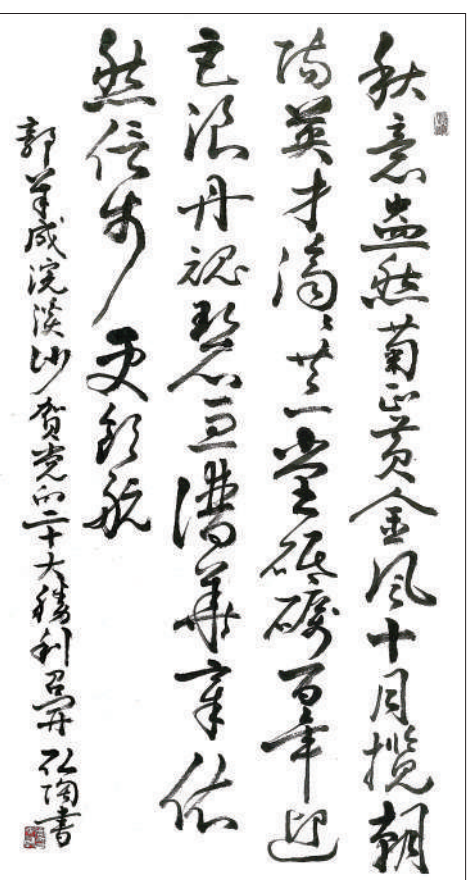 秋意盎然菊正黄金风十月揽朝
阳英才济济共一堂砥砺百年迎
巨浪丹魂碧血谱華章依
然信步更领航
郭成浣溪沙贺党的二十大勝利召开 弘書